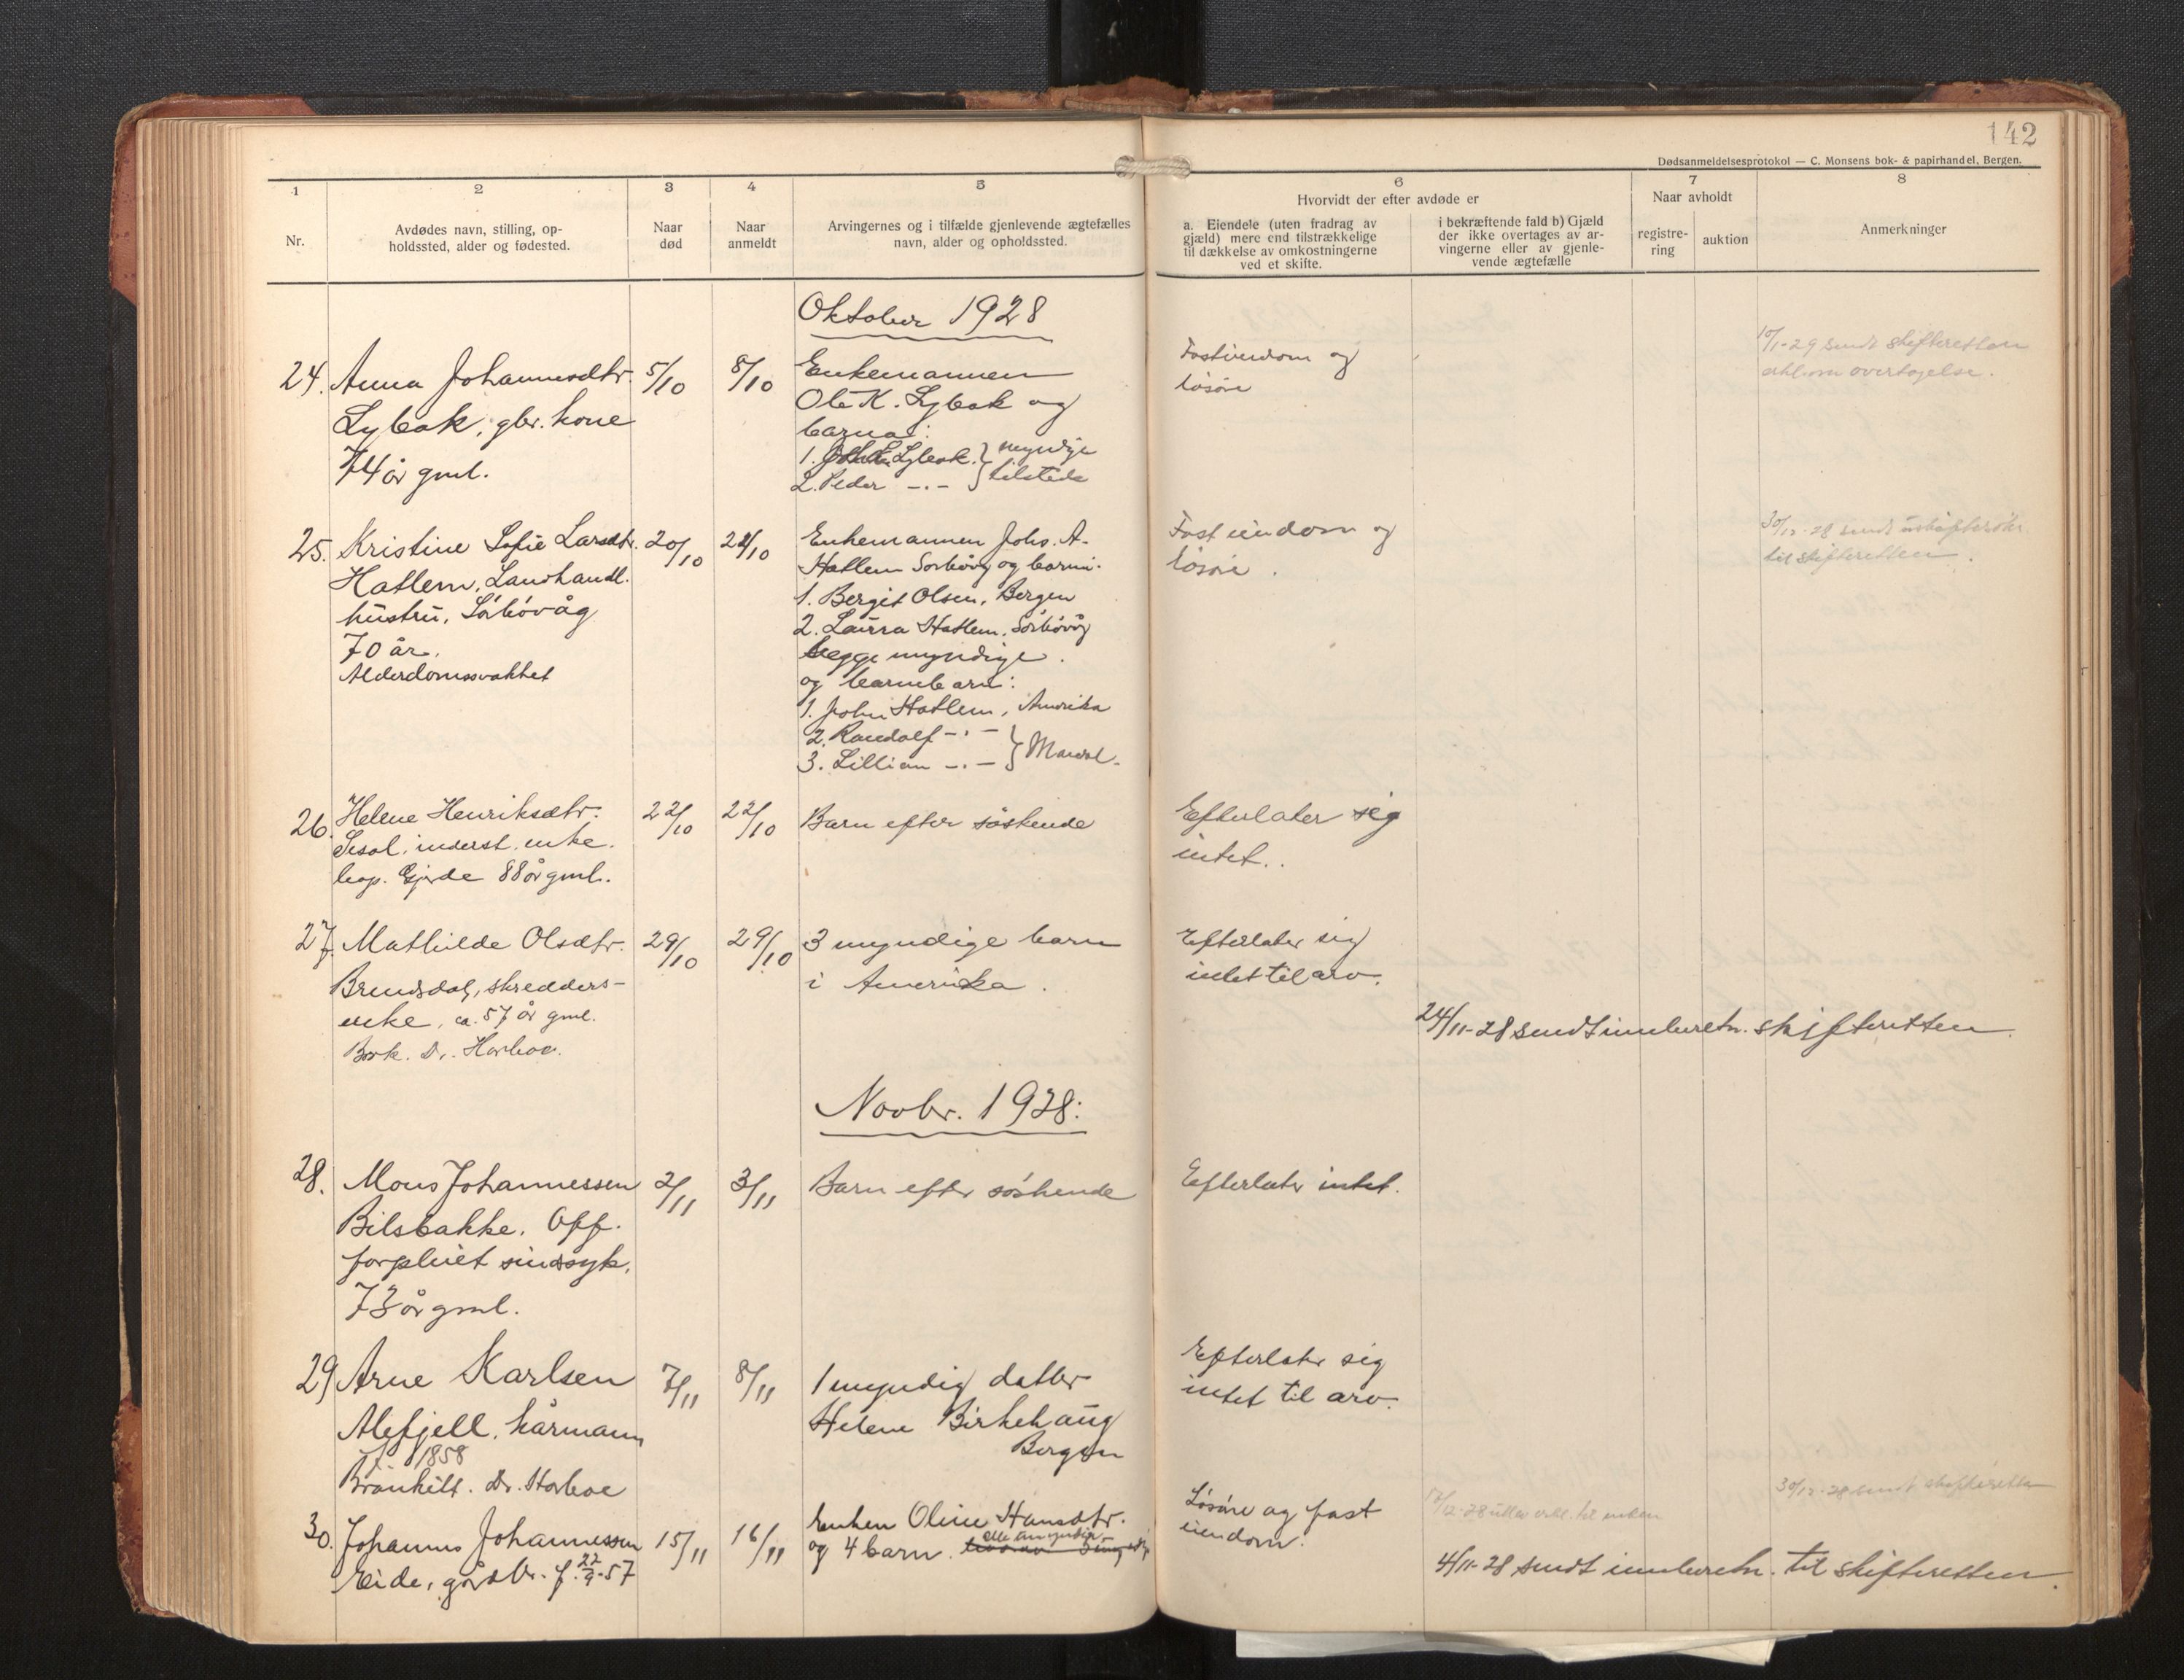 142
Dødsanmeldelsesprotokol — C. Monsens bok- & papirhandel, Bergen.
1
2
3
4
5
6
7
8
Nr.
Avdødes navn, stilling, op-
holdssted, alder og fødested.
Naar
død
Naar
anmeldt
Arvingernes og i tilfælde gjenlevende ægtefælles
navn, alder og opholdssted.
Hvorvidt der efter avdøde er
a. Eiendele (uten fradrag av
gjæld) mere end tilstrækkelige
til dækkelse av omkostningerne
ved et skifte.
i bekræftende fald b) Gjæld
der ikke overtages av ar-
vingerne eller av gjenle-
vende ægtefælle
Naar avholdt
registre-
ring
auktion
Anmerkninger
Oktober 1928
24. Anna Johannesdtr.
Lybak, gbr. kone
74 år gml.
5/10
8/10
Enkemannen
Ole K. Lybak og
barna:
1. Lybak
2. Peder —.—
myndige
tilstede
Fasteiendom og
løsøre
10/1-29 sendt skifteretten
overtagelse.
25. Kristine Sofie Larsdtr.
Hatlem, Landhandl.
hustru, Sörbövåg
70 år.
Alderdomssvakhet
20/10
22/10
Enkemannen Johs. A.
Hatlem Sörbövåg og barn:
1. Bergit Olsen, Bergen
2. Laura Hatlem, Sörbövåg
begge myndige.
og barnebarn:
1. John Hatlem, Amerika
2. Randolf —.—
3. Lillian —.—
Fast eiendom og
løsøre.
30/12-28 sendt
til skifteretten.
26. Helene Henriksdtr.
inderst, enke.
Gjerde 88 år gml.
22/10
22/10
Barn efter söskende
Efterlater sig
intet.
27. Mathilde Olsdtr.
Brendsdal, skredders-
enke, ca. 57 år gml.
Dr. Harboe.
29/10
29/10
3 myndige barn
i Amerika.
Efterlater sig
intet til arv.
24/11-28 sendt innberetn. skifteretten.
Novbr. 1928:
28. Mons Johannessen
Bilsbakke. Off.
forpleiet sindssyk.
73 år gml.
2/11
3/11
Barn efter söskende
Efterlater intet.
29 Arne Karlsen
Alefjell, kårmann
f. 1858
Dr. Harboe
7/11
8/11
1 myndig datter
Helene Birkehaug
Bergen
Efterlater sig
intet til arv.
30. Johannes Johannessen
Eide, gårdbr. f. 22/9-57
15/11
16/11
Enken Oline Hansdtr.
og 4 barn. alle myndige
Løsøre og fast
eiendom.
30/12-28 sendt skifteretten
4/11-28 sendt innberetn. til skifteretten.